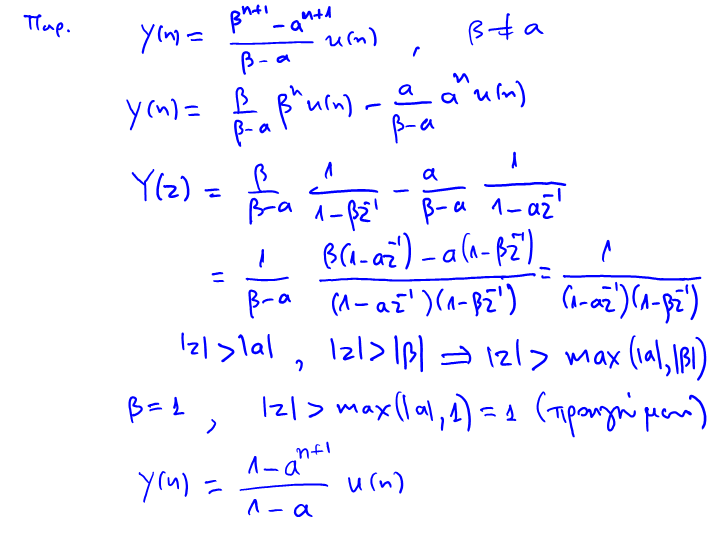 Παρ. y(n) = \frac{β^{n+1} - a^{n+1}}{β - a} u(n) , β ≠ a
y(n) = \frac{β}{β-a} β^n u(n) - \frac{a}{β-a} a^n u(n)
Y(z) = \frac{β}{β-a} \frac{1}{1-βz^{-1}} - \frac{a}{β-a} \frac{1}{1-az^{-1}}
= \frac{1}{β-a} \frac{β(1-az^{-1}) - a(1-βz^{-1})}{(1-az^{-1})(1-βz^{-1})} = \frac{1}{(1-az^{-1})(1-βz^{-1})}
|z| > |a| , |z| > |β| ⇒ |z| > max(|a|,|β|)
β = 1 , |z| > max(|a|,1) = 1 (
y(n) = \frac{1-a^{n+1}}{1-a} u(n)